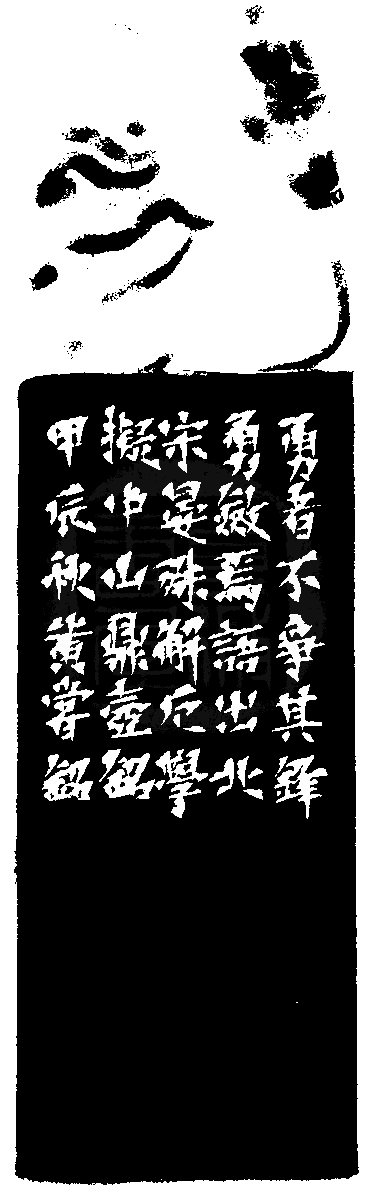 勇者不爭其鋒
勇斂焉語出北
宋晏殊解厄學
擬中山鼎壺銘
甲辰秋黃嘗銘